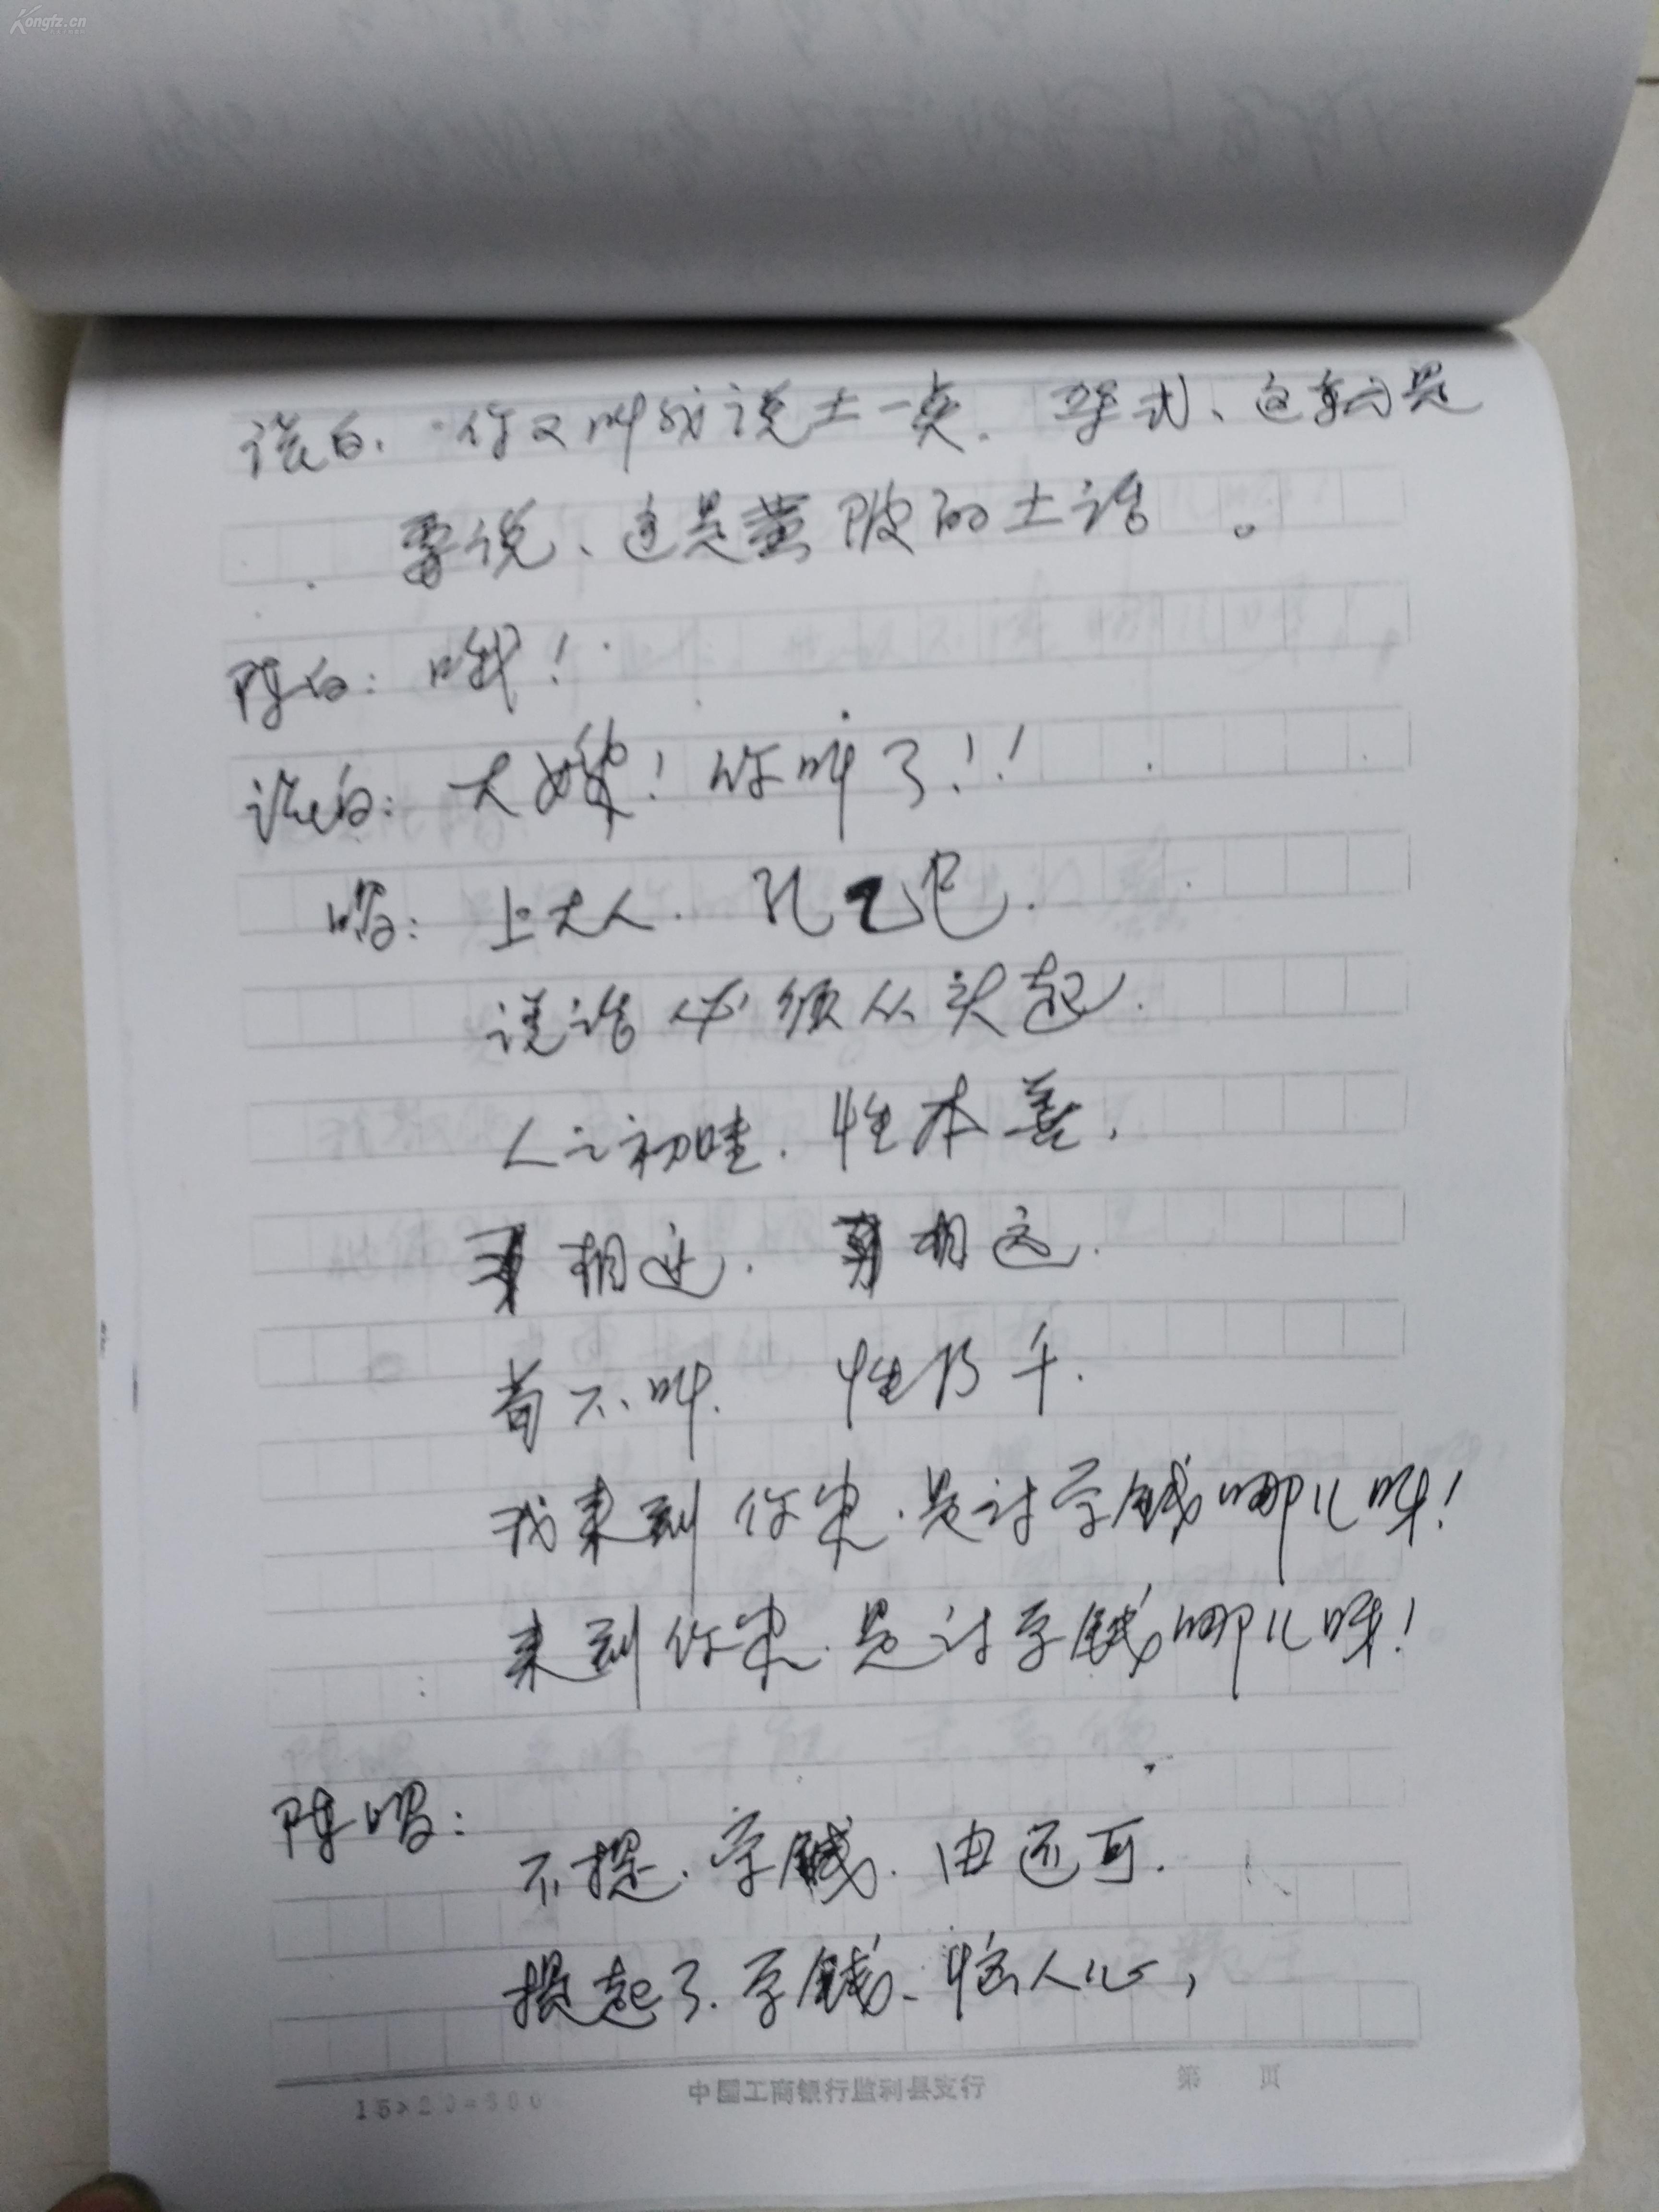 Kongfz.cn
白、你又叫我说土一点、这是
说、这是黄陂的土话。
陈白：哦！
白：大嫂！你叫了！！
唱：上大人．孔乙己．
说话必须从头起．
人之初哇．性本善．
习相近．相远．
苟不叫．性乃千．
我来到你家．是讨学钱哪儿呀！
来到你家．是讨学钱哪儿呀！
陈唱：
不提．学钱．由还可．
提起了．学钱、恼人心，
15×20=300 中国工商银行监利县支行 第 页